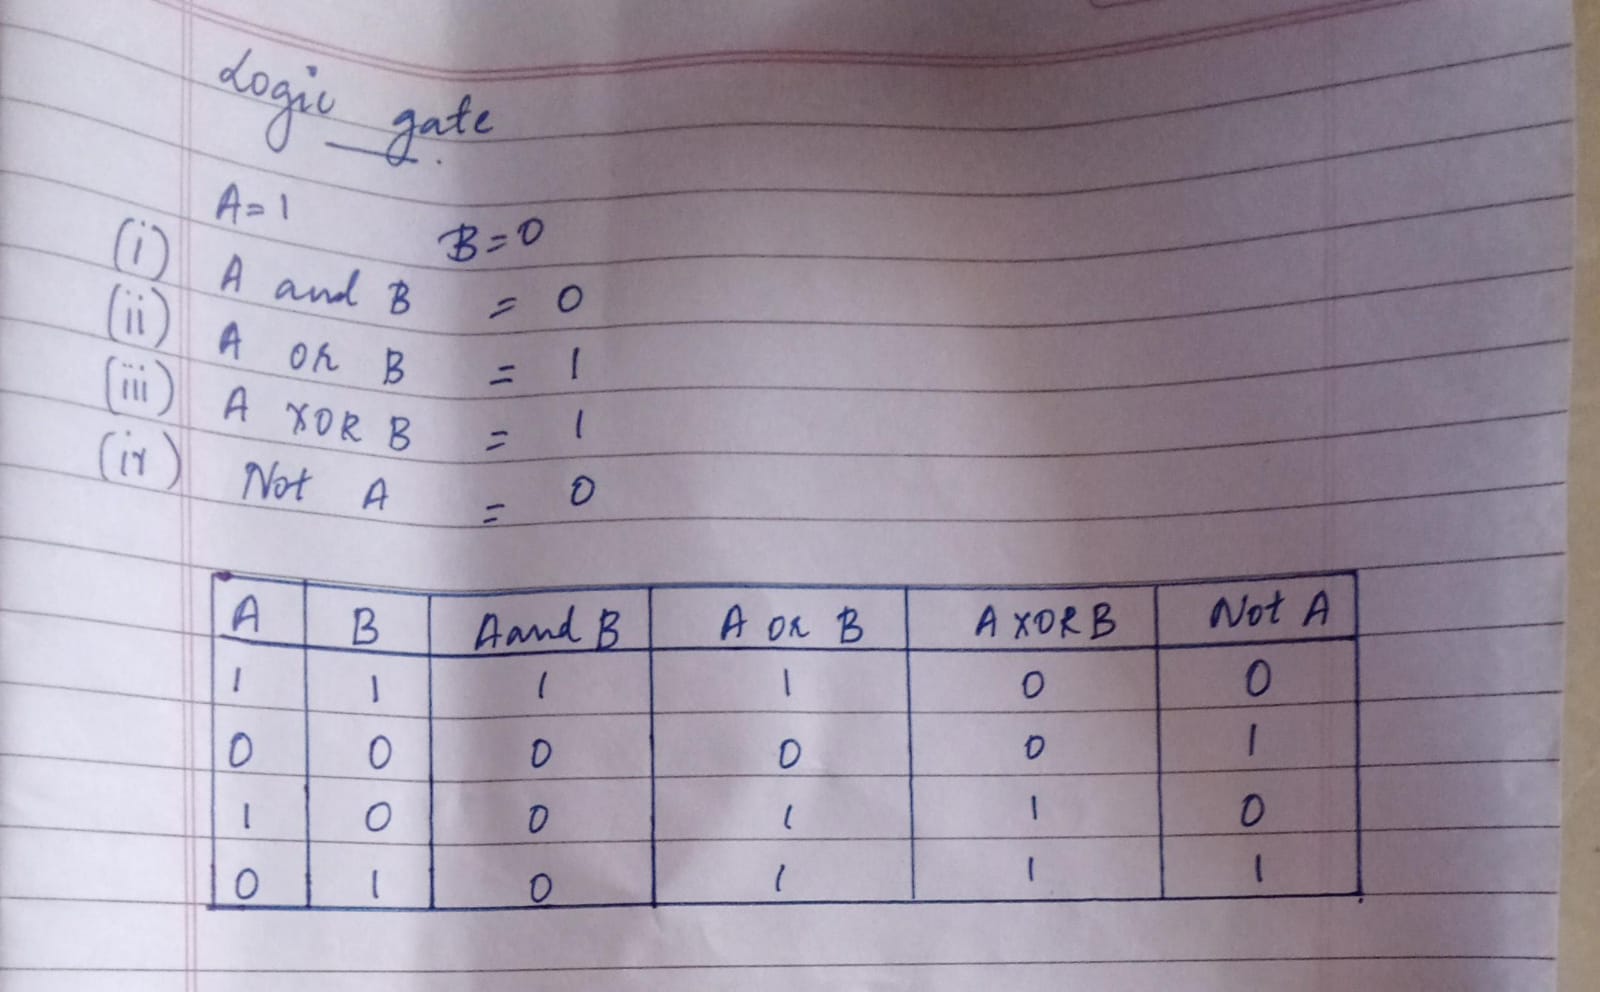 Logic gate.
A=1 B=0
(i) A and B = 0
(ii) A or B = 1
(iii) A XOR B = 1
(iv) Not A = 0
A B A and B A or B A XOR B Not A
1 1 1 1 0 0
0 0 0 0 0 1
1 0 0 1 1 0
0 1 0 1 1 1